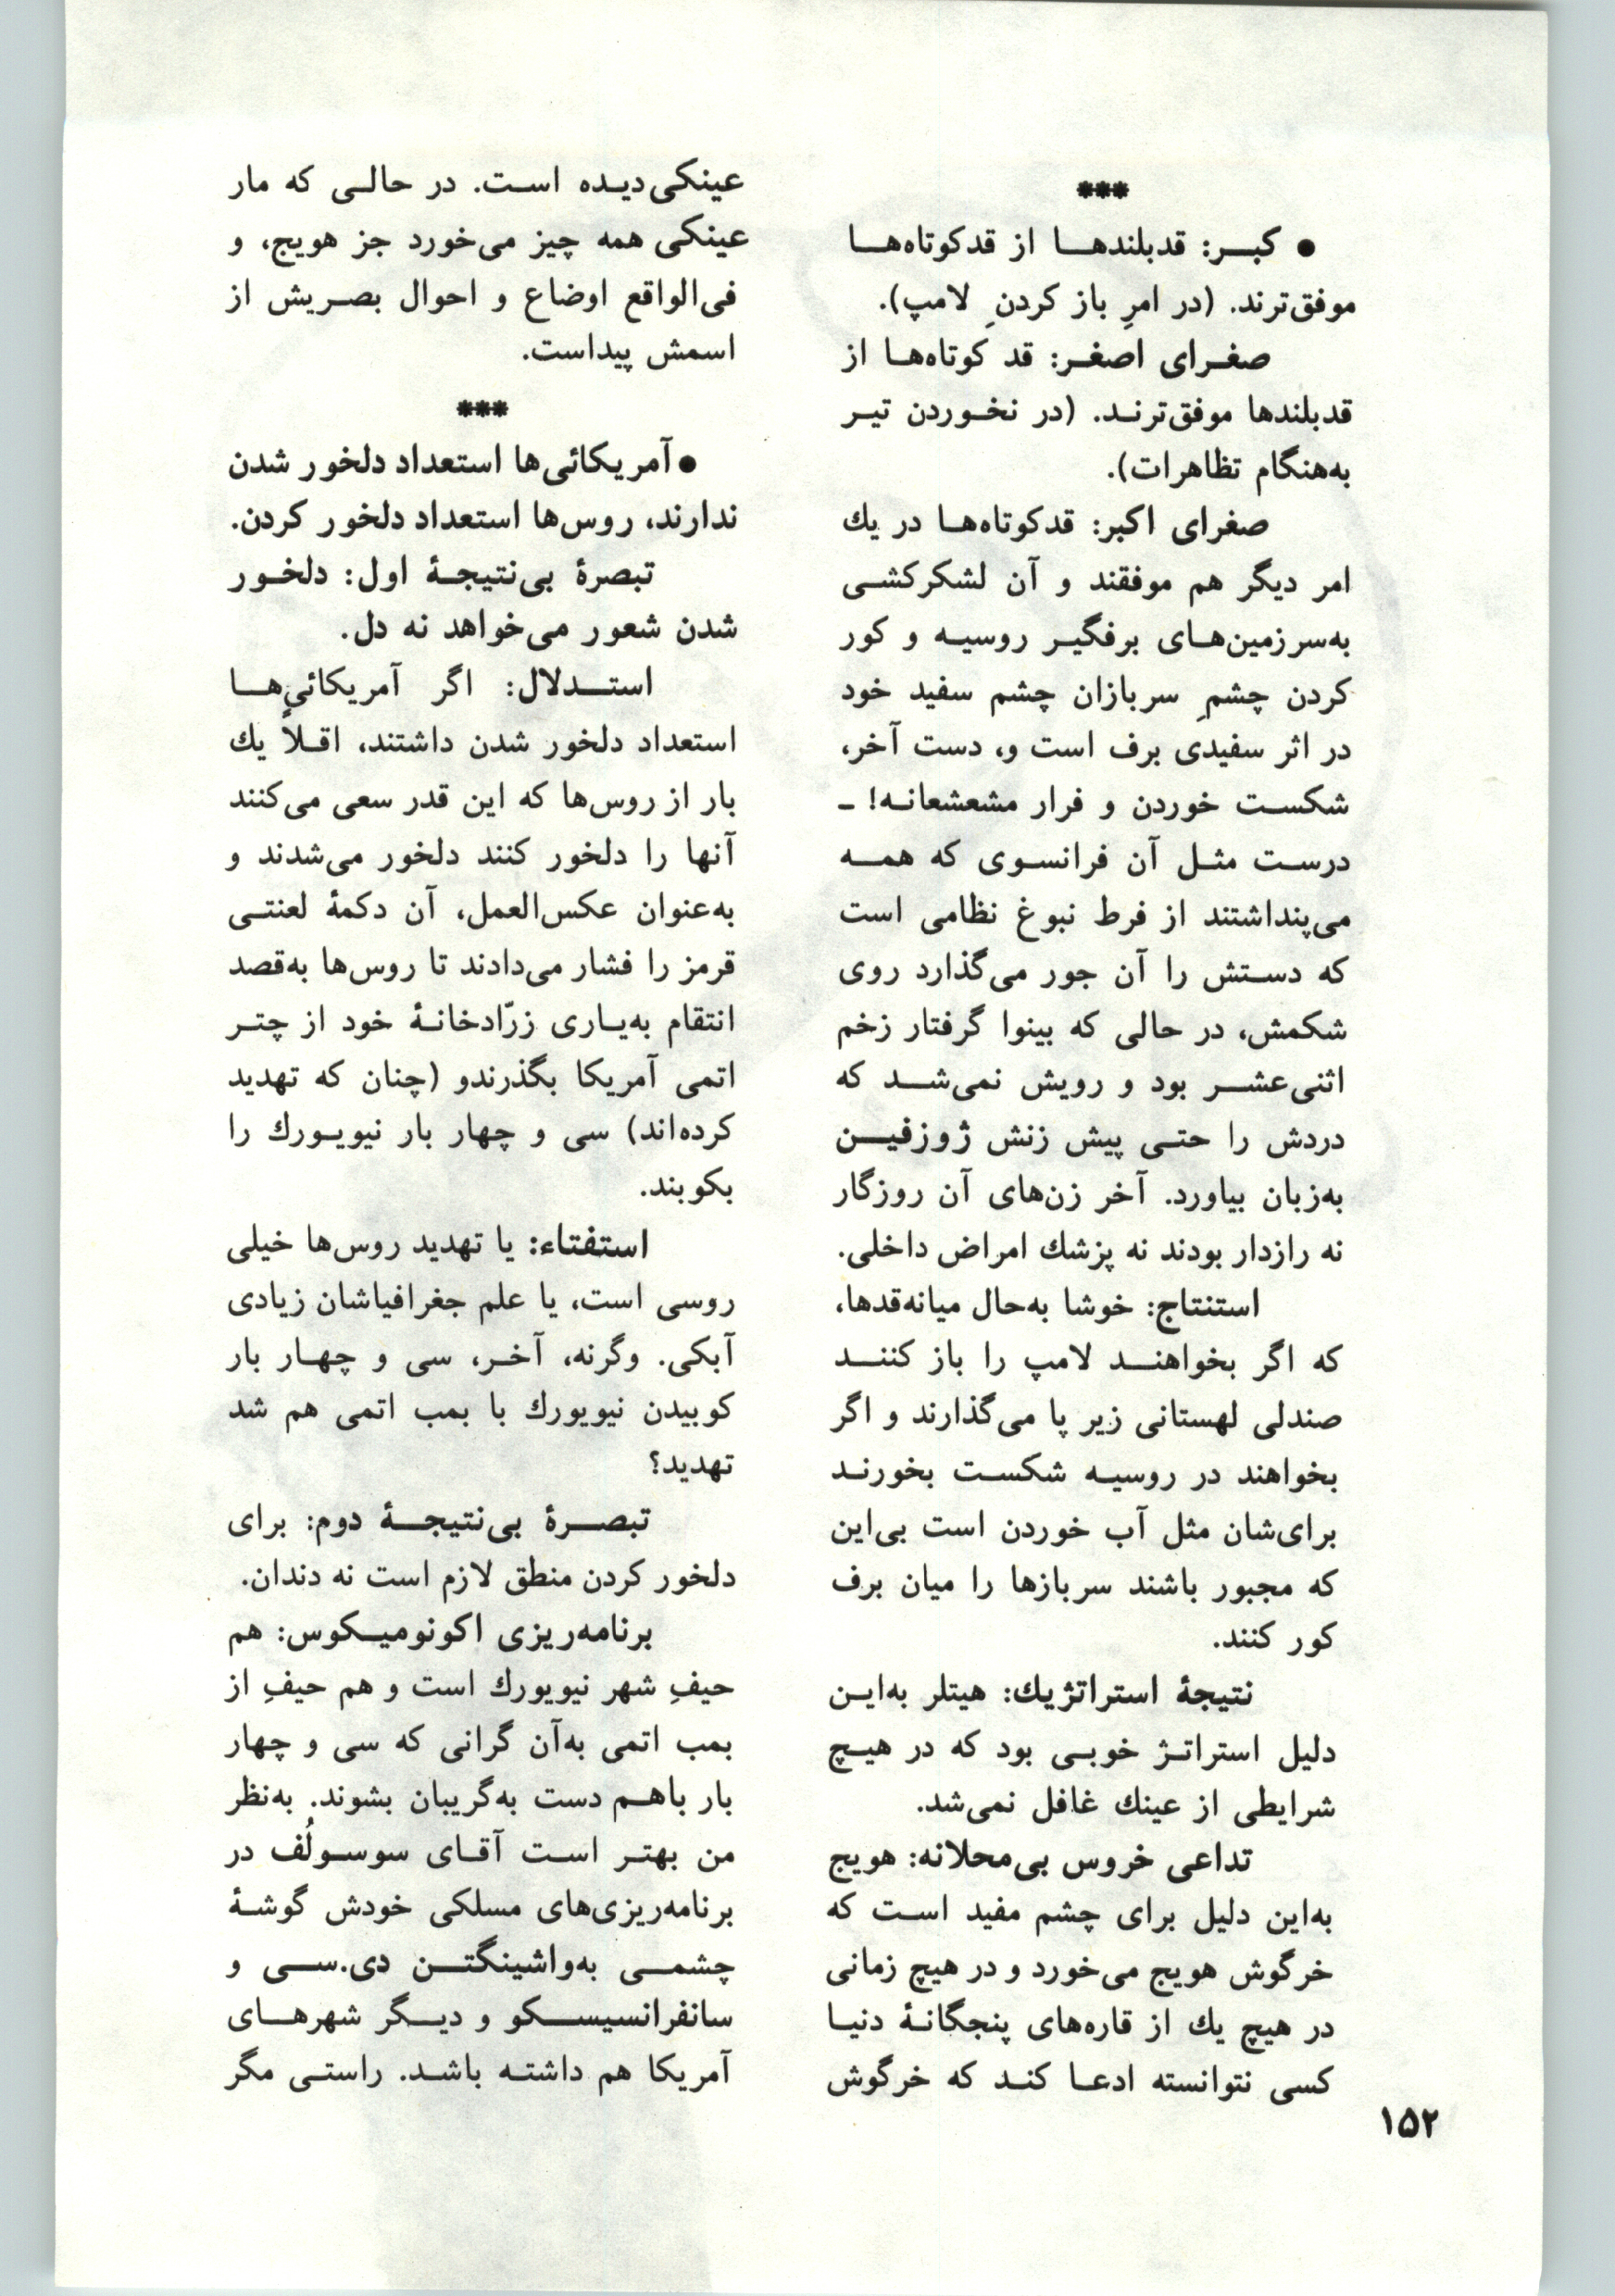 ***
● کبر: قدبلندها از قدکوتاه‌ها
موفق‌ترند. (در امرِ باز کردنِ لامپ).
صغرای اصغر: قد کوتاه‌ها از
قدبلندها موفق‌ترند. (در نخوردن تیر
به‌هنگام تظاهرات).
صغرای اکبر: قدکوتاه‌ها در یك
امر دیگر هم موفقند و آن لشکرکشی
به‌سرزمین‌های برفگیر روسیه و کور
کردن چشمِ سربازان چشم سفید خود
در اثر سفیدی برف است و، دست آخر،
شکست خوردن و فرار مشعشعانه! ـ
درست مثل آن فرانسوی که همه
می‌پنداشتند از فرط نبوغ نظامی است
که دستش را آن جور می‌گذارد روی
شکمش، در حالی که بینوا گرفتار زخم
اثنی‌عشر بود و رویش نمی‌شد که
دردش را حتی پیش زنش ژوزفین
به‌زبان بیاورد. آخر زن‌های آن روزگار
نه رازدار بودند نه پزشك امراض داخلی.
استنتاج: خوشا به‌حال میانه‌قدها،
که اگر بخواهند لامپ را باز کنند
صندلی لهستانی زیر پا می‌گذارند و اگر
بخواهند در روسیه شکست بخورند
برای‌شان مثل آب خوردن است بی‌این
که مجبور باشند سربازها را میان برف
کور کنند.
نتیجهٔ استراتژیك: هیتلر به‌این
دلیل استراتژ خوبی بود که در هیچ
شرایطی از عینك غافل نمی‌شد.
تداعی خروس بی‌محلانه: هویج
به‌این دلیل برای چشم مفید است که
خرگوش هویج می‌خورد و در هیچ زمانی
در هیچ یك از قاره‌های پنجگانهٔ دنیا
کسی نتوانسته ادعا کند که خرگوش
عینکی‌دیده است. در حالی که مار
عینکی همه چیز می‌خورد جز هویج، و
فی‌الواقع اوضاع و احوال بصریش از
اسمش پیداست.
***
● آمریکائی‌ها استعداد دلخور شدن
ندارند، روس‌ها استعداد دلخور کردن.
تبصرهٔ بی‌نتیجهٔ اول: دلخور
شدن شعور می‌خواهد نه دل.
استدلال: اگر آمریکائی‌ها
استعداد دلخور شدن داشتند، اقلاً یك
بار از روس‌ها که این قدر سعی می‌کنند
آنها را دلخور کنند دلخور می‌شدند و
به‌عنوان عکس‌العمل، آن دکمهٔ لعنتی
قرمز را فشار می‌دادند تا روس‌ها به‌قصد
انتقام به‌یاری زرّادخانهٔ خود از چتر
اتمی آمریکا بگذرندو (چنان که تهدید
کرده‌اند) سی و چهار بار نیویورك را
بکوبند.
استفتاء: یا تهدید روس‌ها خیلی
روسی است، یا علم جغرافیاشان زیادی
آبکی. وگرنه، آخر، سی و چهار بار
کوبیدن نیویورك با بمب اتمی هم شد
تهدید؟
تبصرهٔ بی‌نتیجهٔ دوم: برای
دلخور کردن منطق لازم است نه دندان.
برنامه‌ریزی اکونومیکوس: هم
حیفِ شهر نیویورك است و هم حیفِ از
بمب اتمی به‌آن گرانی که سی و چهار
بار باهم دست به‌گریبان بشوند. به‌نظر
من بهتر است آقای سوسولُف در
برنامه‌ریزی‌های مسلکی خودش گوشهٔ
چشمی به‌واشینگتن دی.سی و
سانفرانسیسکو و دیگر شهرهای
آمریکا هم داشته باشد. راستی مگر
۱۵۲